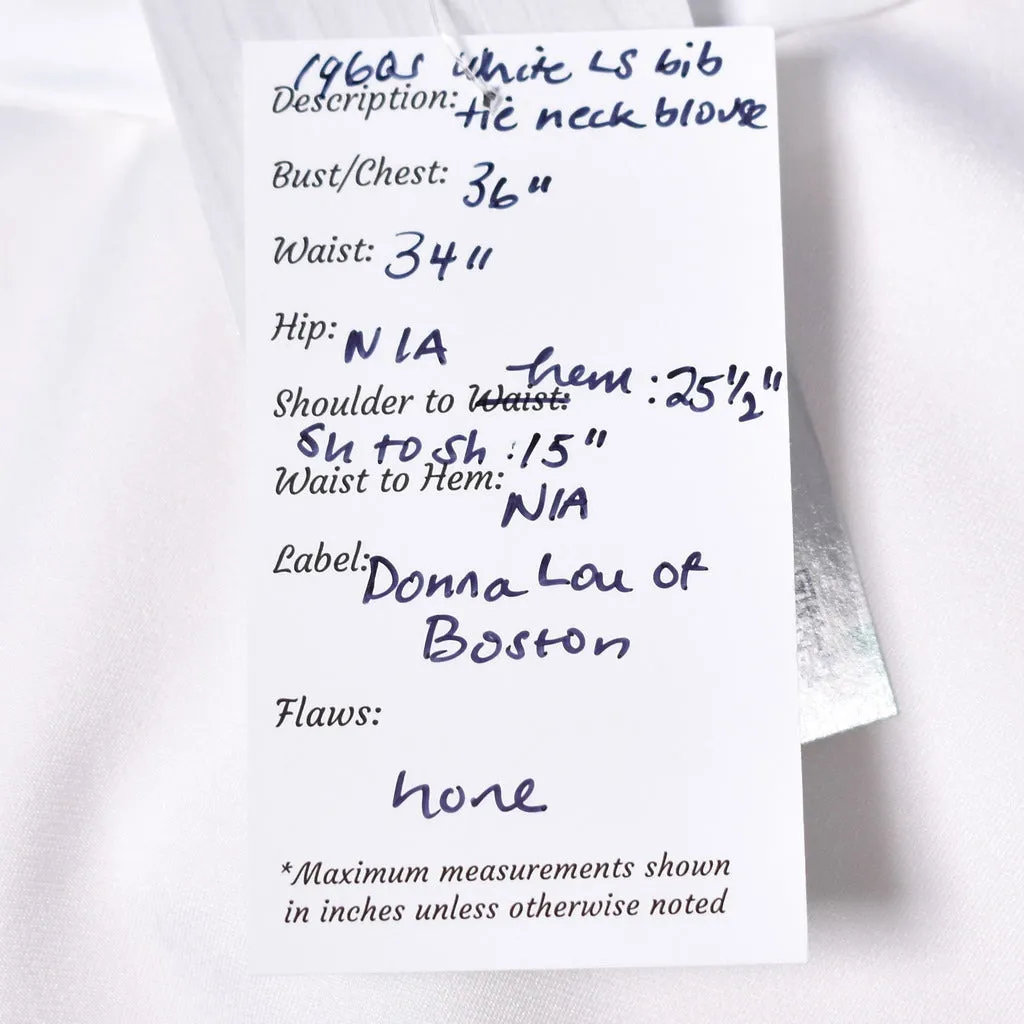 1960s white LS bib
Description: tie neck blouse
Bust/Chest: 36"
Waist: 34"
Hip: N/A
Shoulder to Waist: hem: 25 1/2"
Sh to sh: 15"
Waist to Hem: N/A
Label: Donna Lou of
Boston
Flaws:
none
*Maximum measurements shown
in inches unless otherwise noted